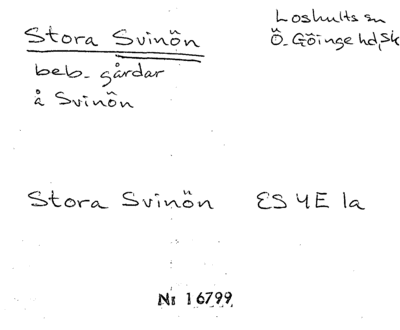 Stora Svinön
Loshults sn
Ö. Göinge hd, Sk
beb. gårdar
å Svinön
Stora Svinön ES 4E 1a
No 16799